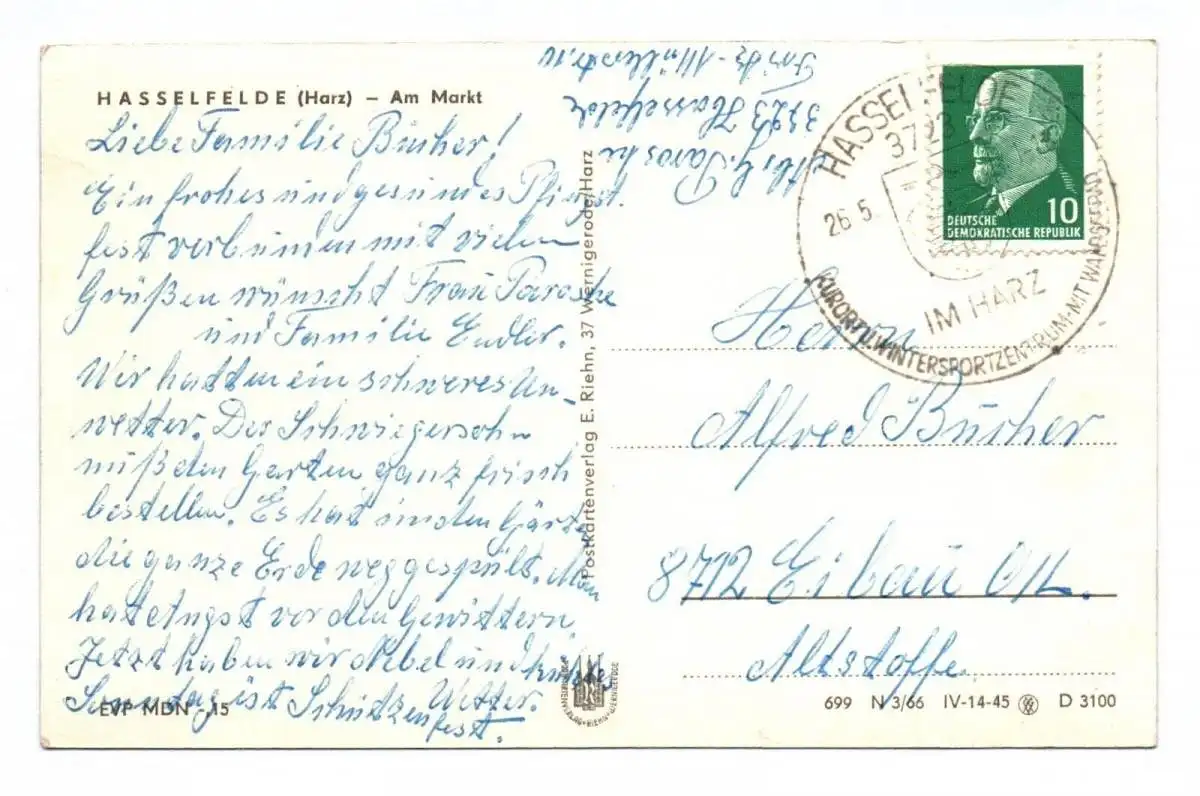 HASSELFELDE (Harz) – Am Markt
Liebe Familie Bücher!
Ein frohes und gesundes Pfingst-
fest verbunden mit vielen
Grüßen wünscht Frau Paroske
und Familie Endler.
Wir hatten ein schweres Un-
wetter. Der Schwiegersohn
muß den Garten ganz frisch
bestellen. Es hat in den Gärten
die ganze Erde weggespült. Man
hat Angst vor den Gewittern
Jetzt haben wir Nebel und kühles
Sonntag ist Schützen Wetter.
fest.
EVP MDN -,15
Abs. G. Paroske
3723 Hasselfelde
Fritz-Müllerstr. 10
Postkartenverlag E. Riehn, 37 Wernigerode/Harz
HASSELFELDE
3723
26.5.
IM HARZ
KURORT U. WINTERSPORTZENTRUM · MIT WALDSEEBAD
10
DEUTSCHE
DEMOKRATISCHE REPUBLIK
Herrn
Alfred Bücher
8712 Eibau O/L.
Altstoffe
699 N 3/66 IV-14-45 D 3100